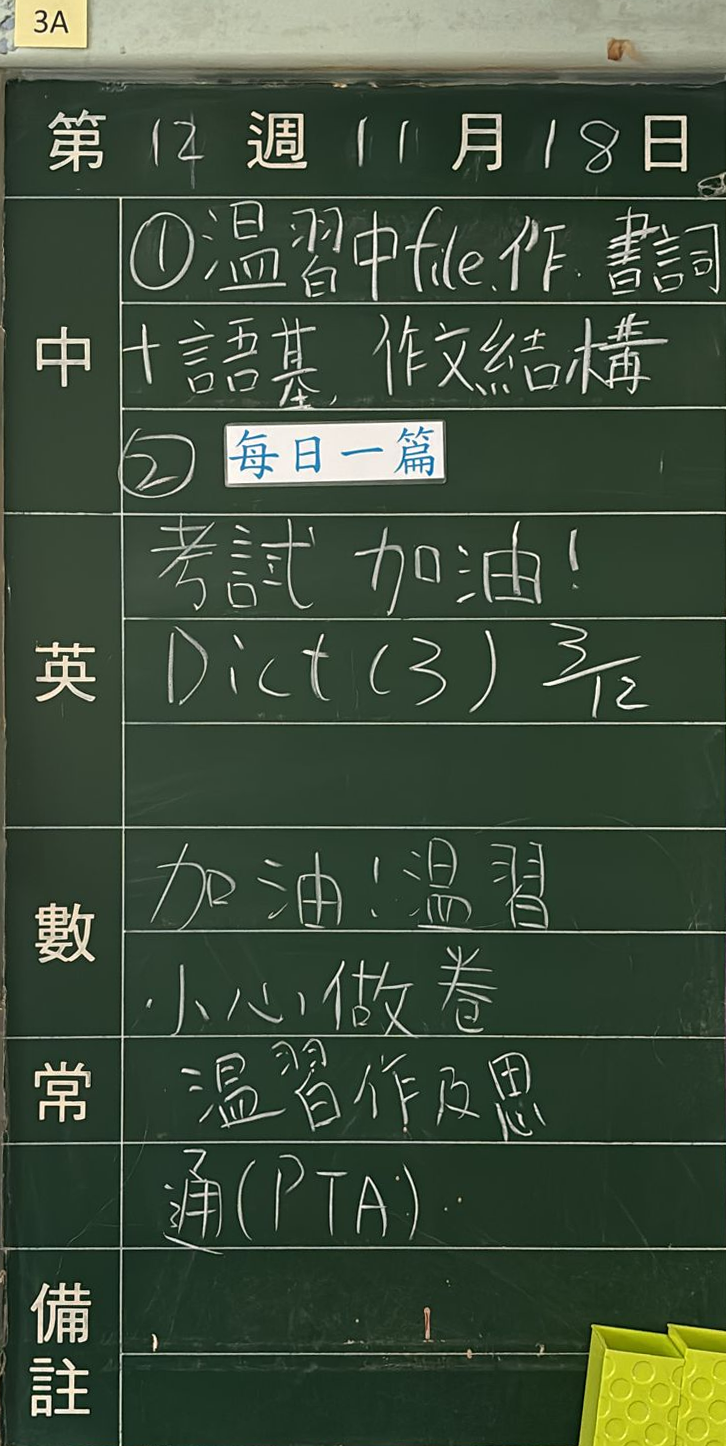 3A
第 12 週 11 月 18 日
中
①温習中file、作、書詞
十語基 作文結構
② 每日一篇
英
考試 加油!
Dict (3) 3/12
數
加油!温習
小心做卷
常
温習作及思
通(PTA)
備註